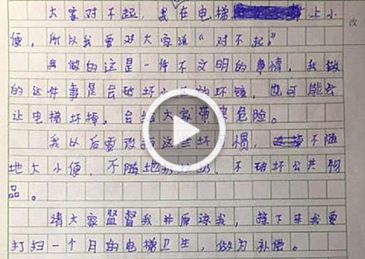 大家对不起，我在电梯上小
便，所以我要对大家说“对不起。”
我做的这是一件不文明的事情，我做
的这件事是会破坏小区的环境，也可能会
让电梯坏掉，会给大家带来危险。
我以后要改掉这些坏习惯，不随
地大小便，不随地扔，不破坏公共物
品。
请大家监督我并原谅我，接下来我要
打扫一个月的电梯卫生，做为补偿。